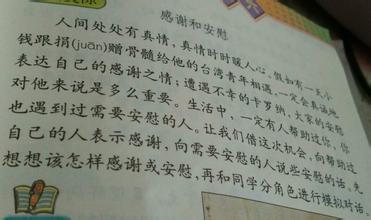 感谢和安慰
人间处处有真情，真情时时暖人心。假如有一天小
钱跟捐(juān)赠骨髓给他的台湾青年相遇，一定会真诚地
表达自己的感谢之情；遭遇不幸的卡罗纳，大家的安慰
对他来说是多么重要。生活中，一定有人帮助过你，你
也遇到过需要安慰的人。让我们借这次机会，向帮助过
自己的人表示感谢，向需要安慰的人说些安慰的话。先
想想该怎样感谢或安慰，再和同学分角色进行模拟对话。